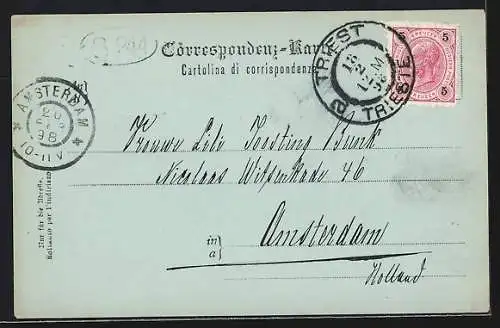 Correspondenz-Karte
Cartolina di corrispondenza
TRIEST
18
2
12 M
98
TRIESTE
5 5
5 5
AMSTERDAM
20
98
10-11 V
Vrouwe Lili Joosting Bunk
Nicolaas Witsenkade 46
in
a
Amsterdam
Holland
Nur für die Adresse.
Soltanto per l'indirizzo.